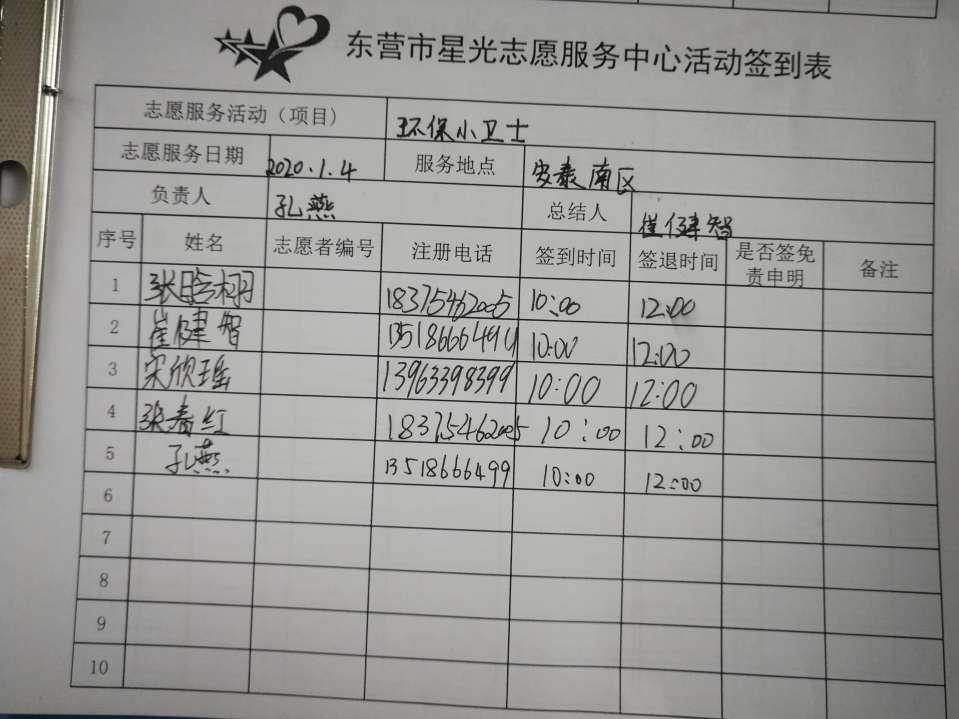 东营市星光志愿服务中心活动签到表
志愿服务活动（项目） 环保小卫士
志愿服务日期 2020.1.4 服务地点 安泰南区
负责人 孔燕 总结人 崔健智
序号 姓名 志愿者编号 注册电话 签到时间 签退时间 是否签免责申明 备注
1 张晗栩 18375462005 10:00 12:00
2 崔健智 10:00 12:00
3 宋欣瑶 13963398399 10:00 12:00
4 张春红 18375462005 10:00 12:00
5 孔燕 13518666499 10:00 12:00
6
7
8
9
10